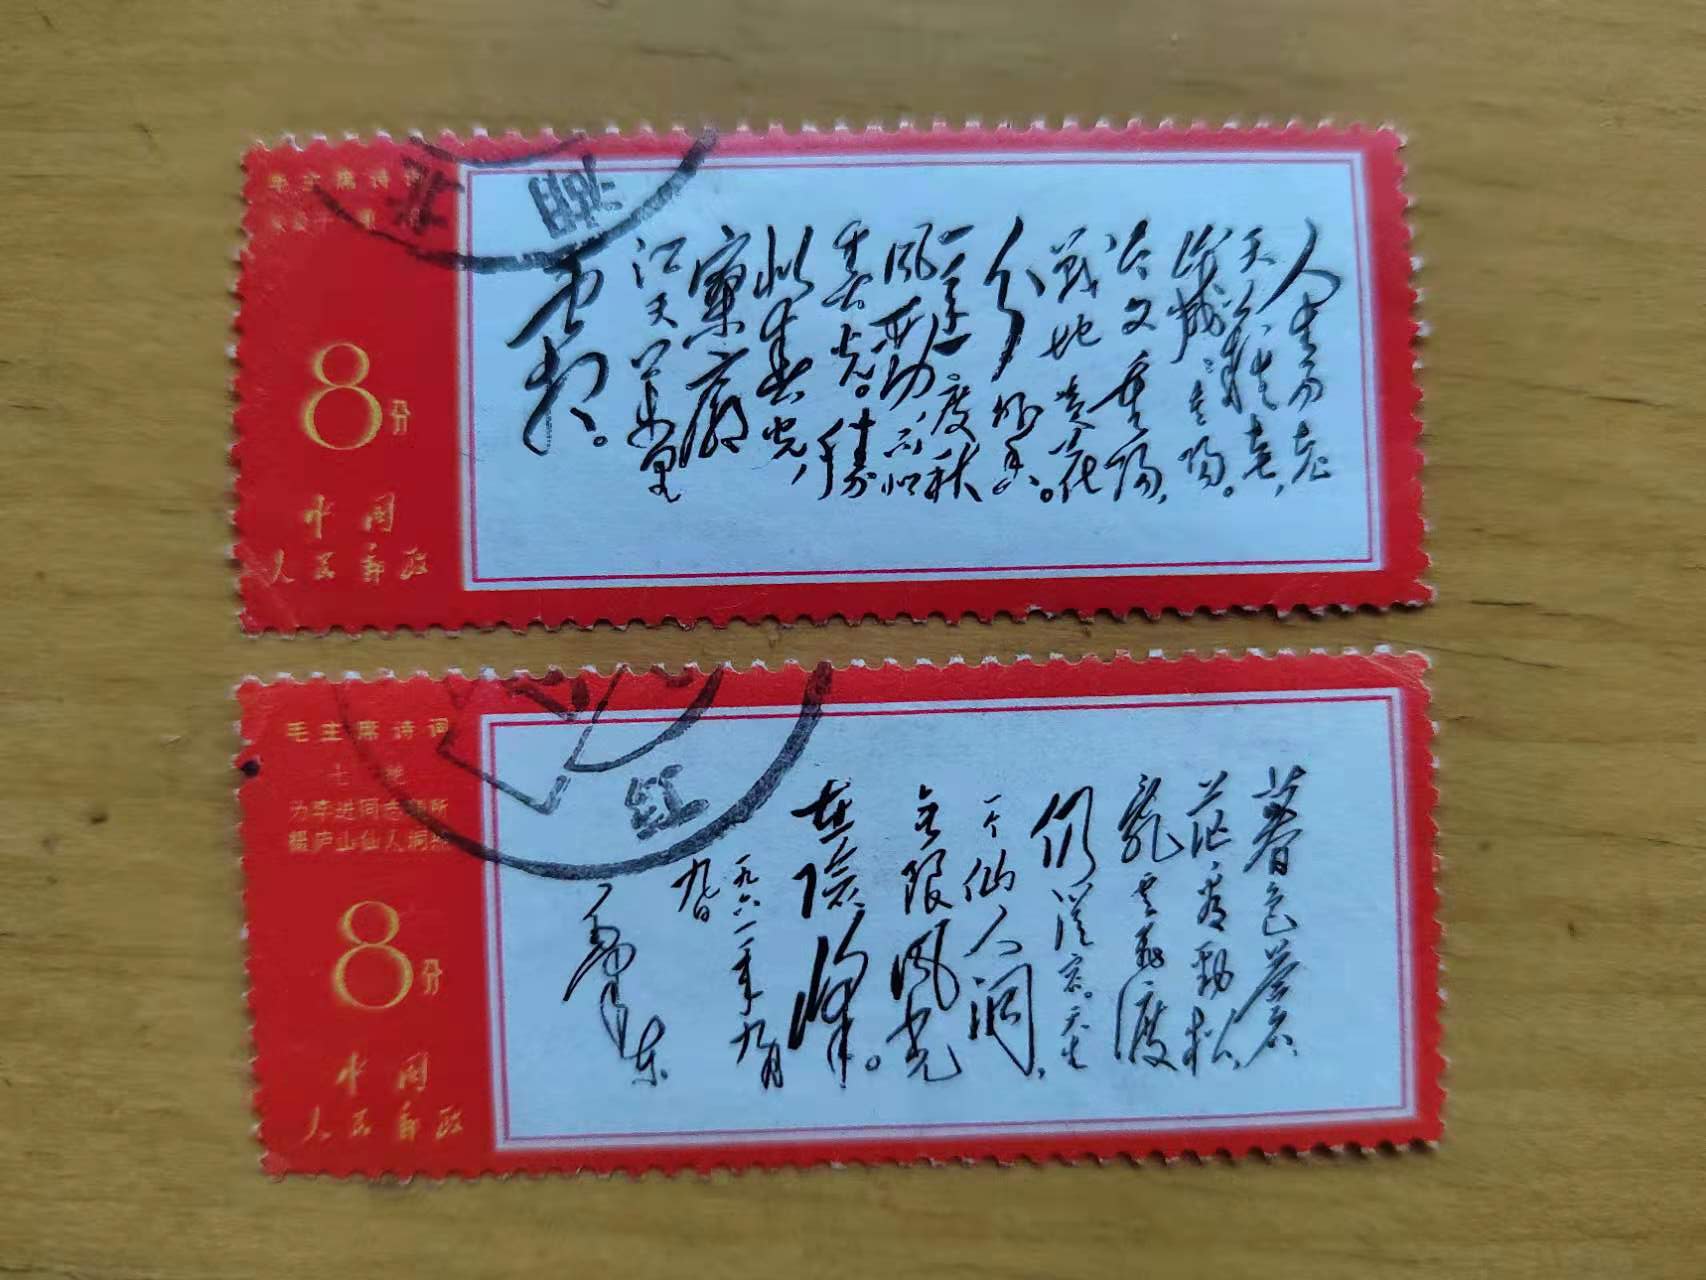 毛主席诗词
8分
中国
人民邮政
人生易老
天難老,
歲歲重陽。
今又重陽,
戰地黄花
分外香。
一年一度秋
風勁,不似
春光。勝
似春光,
寥廓
江天萬里
霜。
北湖
毛主席诗词
七绝
为李进同志题所
摄庐山仙人洞照
8分
中国
人民邮政
暮色蒼
茫看勁松,
亂雲飛渡
仍從容。天生
一个仙人洞,
無限風光
在險峰。
一九六一年九月
九日
毛澤东
红